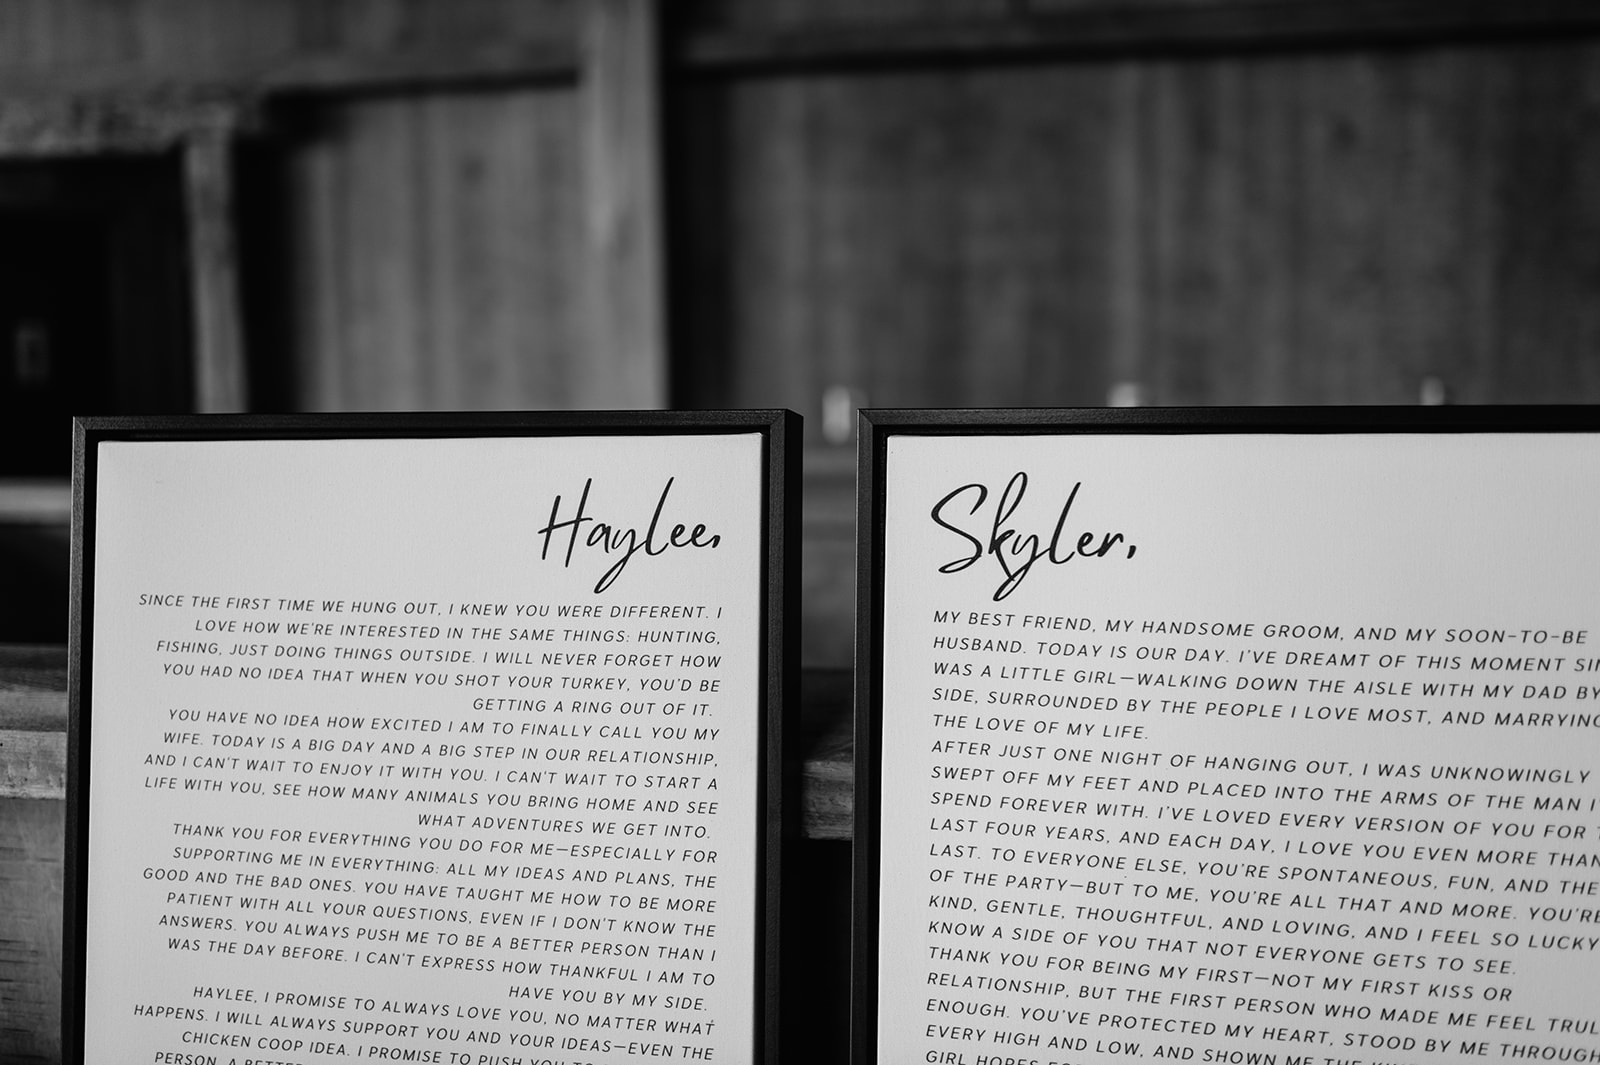 Haylee,
SINCE THE FIRST TIME WE HUNG OUT, I KNEW YOU WERE DIFFERENT. I
LOVE HOW WE'RE INTERESTED IN THE SAME THINGS: HUNTING,
FISHING, JUST DOING THINGS OUTSIDE. I WILL NEVER FORGET HOW
YOU HAD NO IDEA THAT WHEN YOU SHOT YOUR TURKEY, YOU'D BE
GETTING A RING OUT OF IT.
YOU HAVE NO IDEA HOW EXCITED I AM TO FINALLY CALL YOU MY
WIFE. TODAY IS A BIG DAY AND A BIG STEP IN OUR RELATIONSHIP,
AND I CAN'T WAIT TO ENJOY IT WITH YOU. I CAN'T WAIT TO START A
LIFE WITH YOU, SEE HOW MANY ANIMALS YOU BRING HOME AND SEE
WHAT ADVENTURES WE GET INTO.
THANK YOU FOR EVERYTHING YOU DO FOR ME—ESPECIALLY FOR
SUPPORTING ME IN EVERYTHING: ALL MY IDEAS AND PLANS, THE
GOOD AND THE BAD ONES. YOU HAVE TAUGHT ME HOW TO BE MORE
PATIENT WITH ALL YOUR QUESTIONS, EVEN IF I DON'T KNOW THE
ANSWERS. YOU ALWAYS PUSH ME TO BE A BETTER PERSON THAN I
WAS THE DAY BEFORE. I CAN'T EXPRESS HOW THANKFUL I AM TO
HAVE YOU BY MY SIDE.
HAYLEE, I PROMISE TO ALWAYS LOVE YOU, NO MATTER WHAT
HAPPENS. I WILL ALWAYS SUPPORT YOU AND YOUR IDEAS—EVEN THE
CHICKEN COOP IDEA. I PROMISE TO PUSH YOU TO
PERSON, A BETTER
Skyler,
MY BEST FRIEND, MY HANDSOME GROOM, AND MY SOON-TO-BE
HUSBAND. TODAY IS OUR DAY. I'VE DREAMT OF THIS MOMENT
WAS A LITTLE GIRL—WALKING DOWN THE AISLE WITH MY DAD BY
SIDE, SURROUNDED BY THE PEOPLE I LOVE MOST, AND MARRYING
THE LOVE OF MY LIFE.
AFTER JUST ONE NIGHT OF HANGING OUT, I WAS UNKNOWINGLY
SWEPT OFF MY FEET AND PLACED INTO THE ARMS OF THE MAN
SPEND FOREVER WITH. I'VE LOVED EVERY VERSION OF YOU FOR
LAST FOUR YEARS, AND EACH DAY, I LOVE YOU EVEN MORE THAN
LAST. TO EVERYONE ELSE, YOU'RE SPONTANEOUS, FUN, AND THE
OF THE PARTY—BUT TO ME, YOU'RE ALL THAT AND MORE. YOU'RE
KIND, GENTLE, THOUGHTFUL, AND LOVING, AND I FEEL SO LUCKY
KNOW A SIDE OF YOU THAT NOT EVERYONE GETS TO SEE.
THANK YOU FOR BEING MY FIRST—NOT MY FIRST KISS OR
RELATIONSHIP, BUT THE FIRST PERSON WHO MADE ME FEEL
ENOUGH. YOU'VE PROTECTED MY HEART, STOOD BY ME THROUGH
EVERY HIGH AND LOW, AND SHOWN ME THE
GIRL HOPES